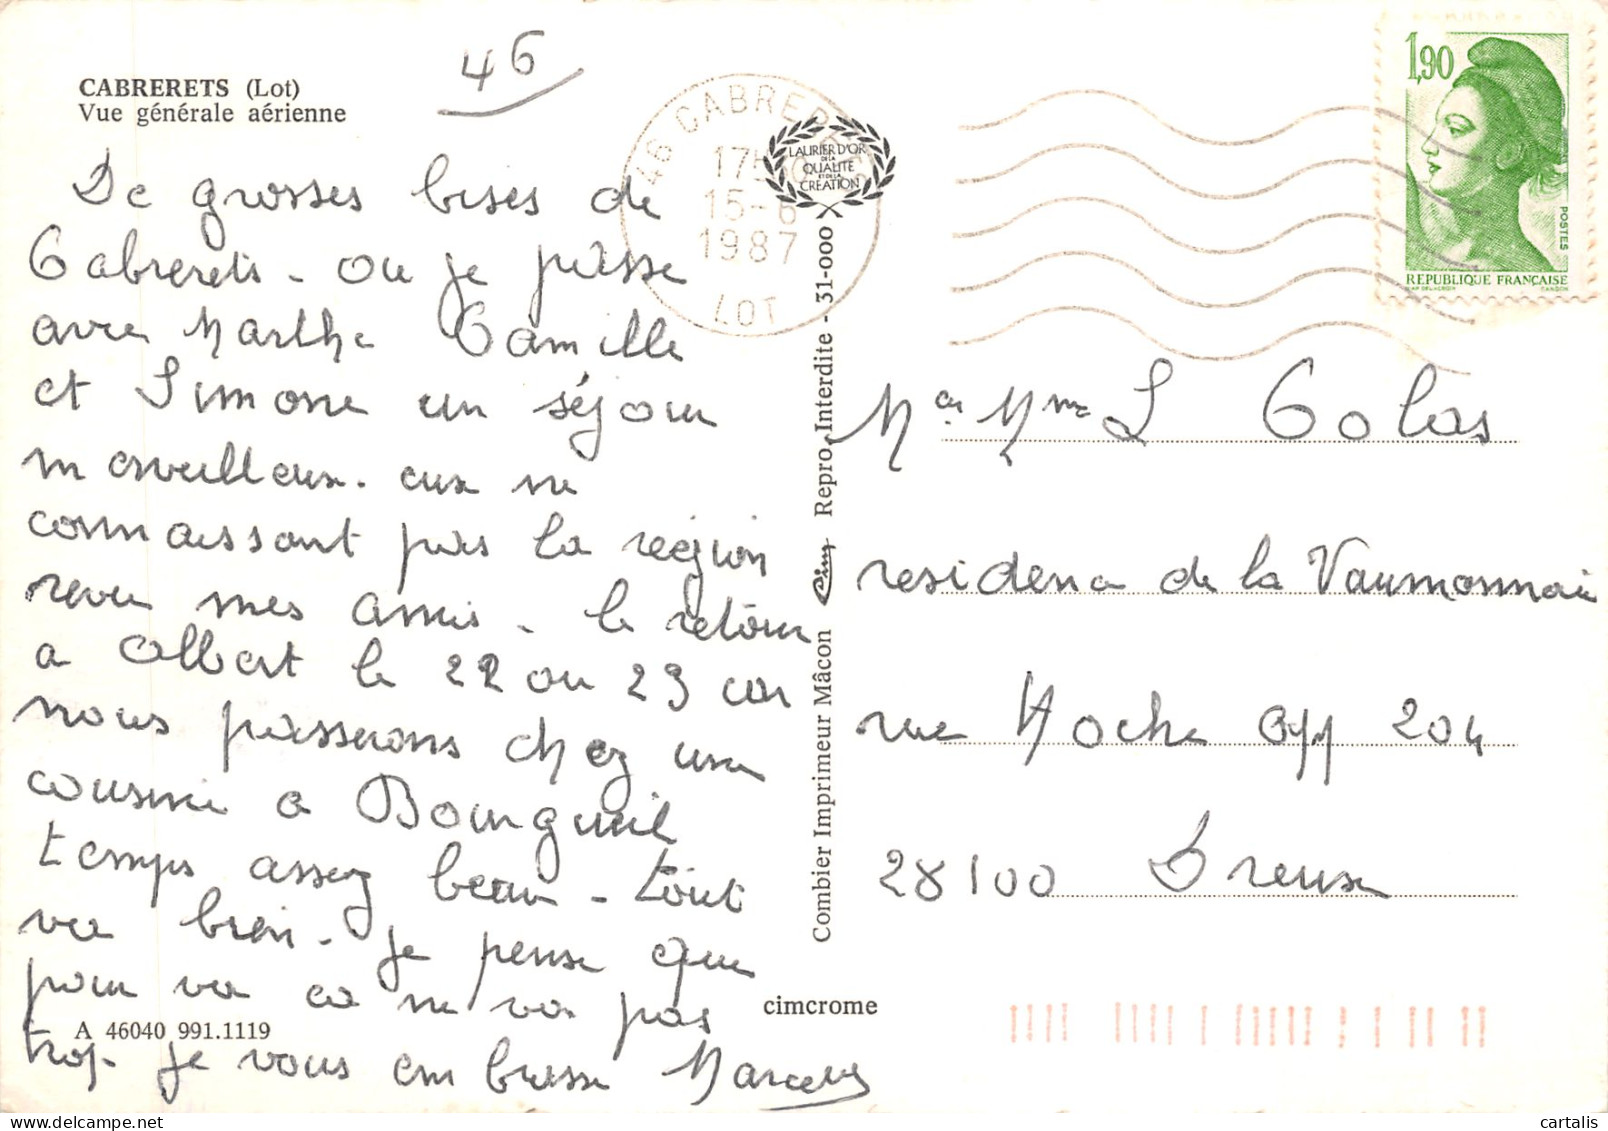 46
CABRERETS (Lot)
Vue générale aérienne
De grosses bises de
Cabrerets - ou je passe
avec Marthe Camille
et Simone un séjour
merveilleux. eux ne
connaissant pas la région
mes amis - le retour
a Albert le 22 ou 23 car
nous passerons chez une
cousine a Bourgueil
temps assez beau - tout
va bien - je pense que
pour va ca ne va pas
trop. je vous embrasse Marcelle
A 46040 991.1119
46 CABRERETS
17H
15-6
1987
LOT
LAURIER D'OR
DE LA
QUALITE
ET DE LA
CREATION
Combier Imprimeur Mâcon Cim Repro. Interdite - 31-000
cimcrome
1,90
POSTES
REPUBLIQUE FRANÇAISE
D'AP DELACROIX GANDON
Mme L Colas
residence de la Vaumonnaie
rue Hoche app 204
28100 Dreux
cartalis